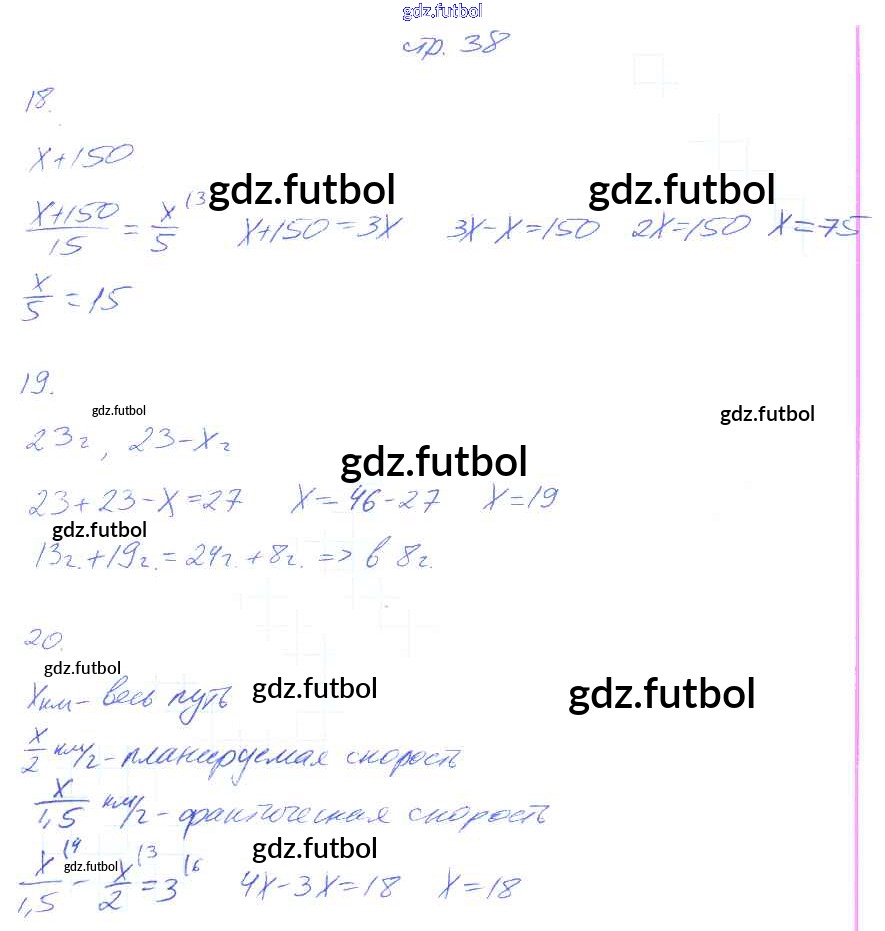 gdz.futbol
стр. 38
18.
x+150
gdz.futbol gdz.futbol
(x+150)/15 = x/5 (3 x+150=3x 3x-x=150 2x=150 x=75
x/5 = 15
19.
gdz.futbol gdz.futbol
23г, 23-xг
gdz.futbol
23+23-x=27 x=46-27 x=19
gdz.futbol
13г.+19г.=24г.+8г. => в 8г.
20.
gdz.futbol
xкм - весь путь gdz.futbol gdz.futbol
x/2 км/г - планируемая скорость
x/1,5 км/г - фактическая скорость
gdz.futbol gdz.futbol
x/1,5 (4 - x/2 (3 = 3 (6 4x-3x=18 x=18